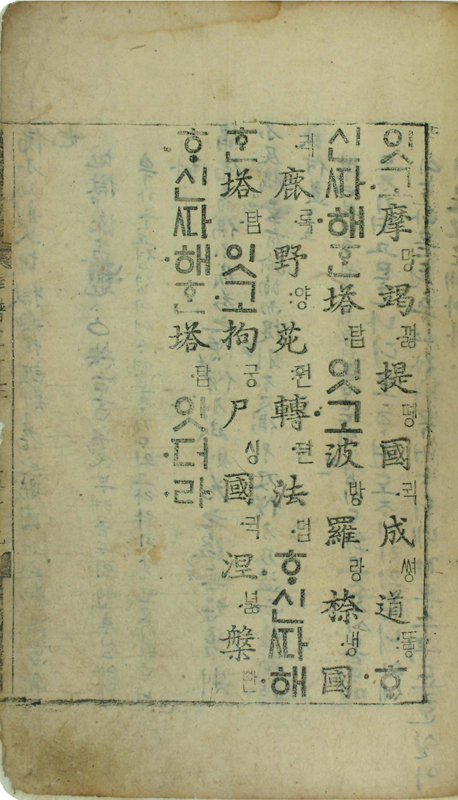 잇고摩망竭껋提똉國귁成쎵道똫ᄒᆞ
신ᄯᅡ해ᄒᆞᆫ塔탑잇고波방羅랑㮈냉國
귁鹿록野양苑ᅙᅯᆫ轉둰法법ᄒᆞ신ᄯᅡ해
ᄒᆞᆫ塔탑잇고拘궁尸싱國귁涅녏槃빤
ᄒᆞ신ᄯᅡ해ᄒᆞᆫ塔탑잇더라